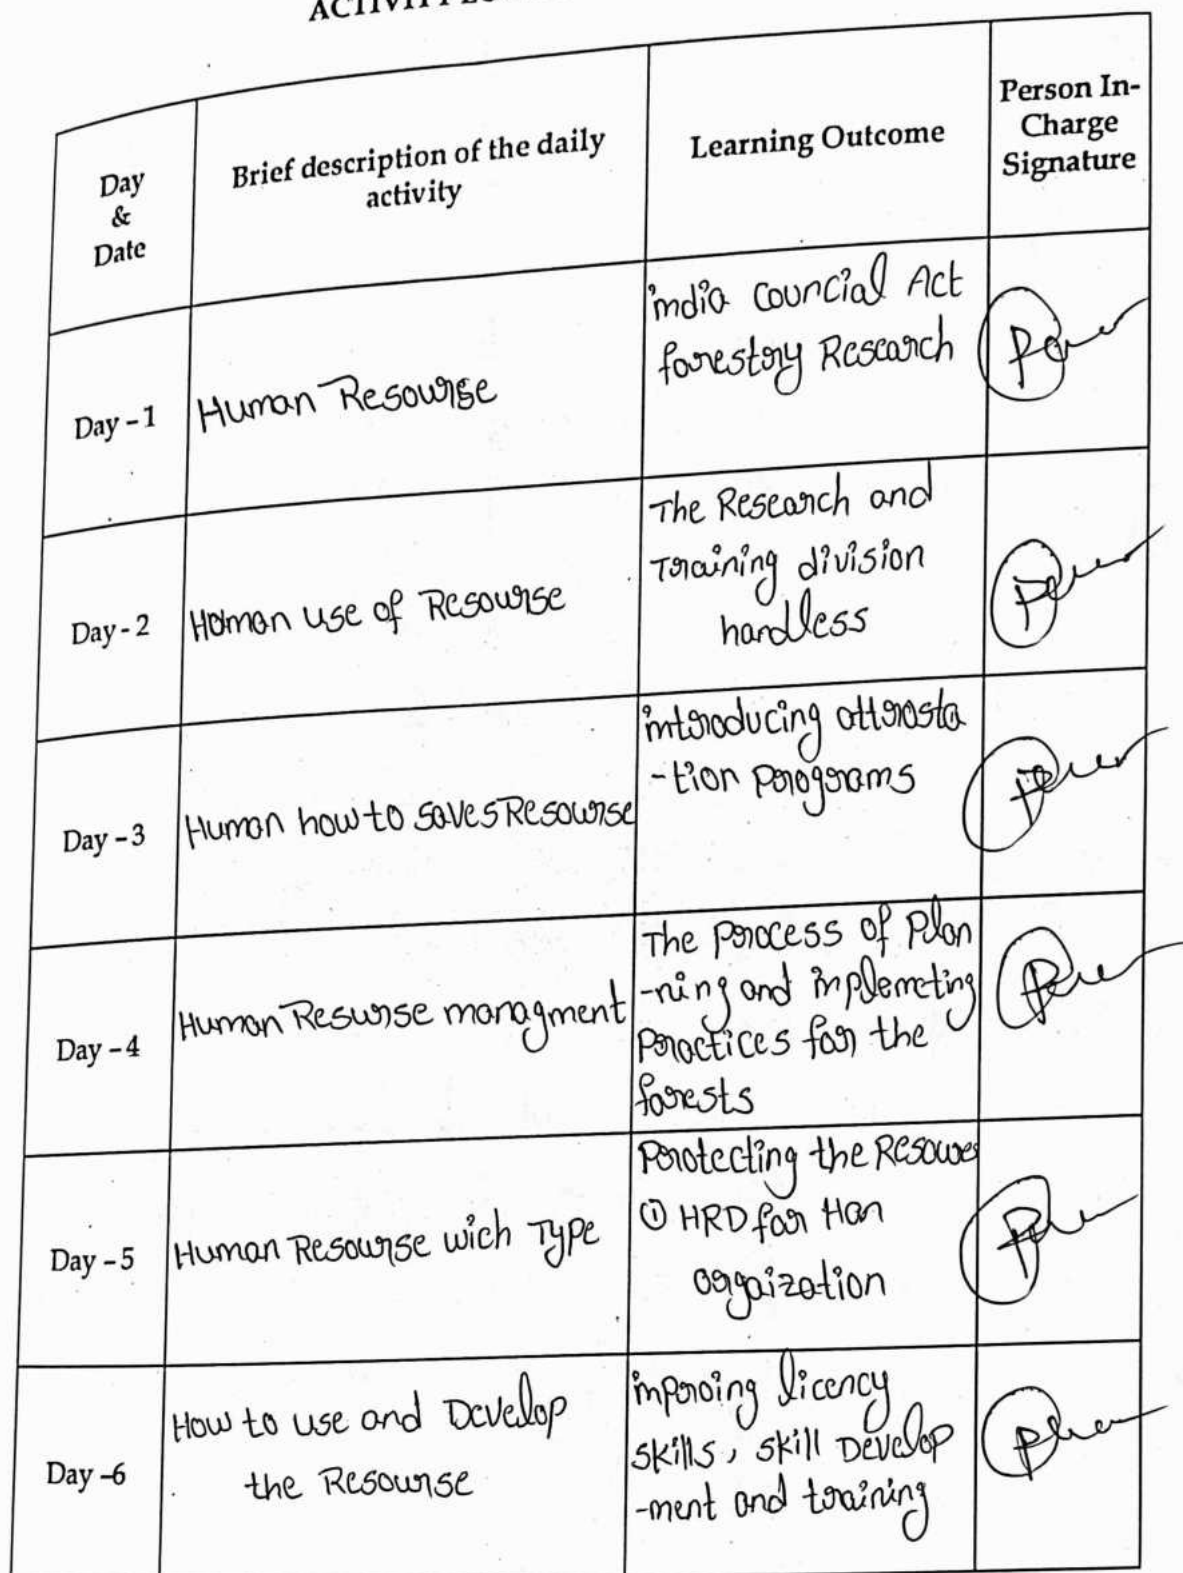 Day
&
Date
Brief description of the daily
activity
Learning Outcome
Person In-
Charge
Signature
Day - 1
Human Resourse
india Councial Act
forestory Research
Day - 2
Human use of Resourse
The Research and
Training division
handless
Day - 3
Human how to saves Resourse
introducing attrosta
-tion programs
Day - 4
Human Resurse managment
The process of plan
-ning and implemeting
practices for the
forests
Day - 5
Human Resourse wich Type
protecting the Resources
① HRD for Han
orgaization
Day -6
How to use and Develop
the Resourse
improing licency
skills, skill Develop
-ment and training